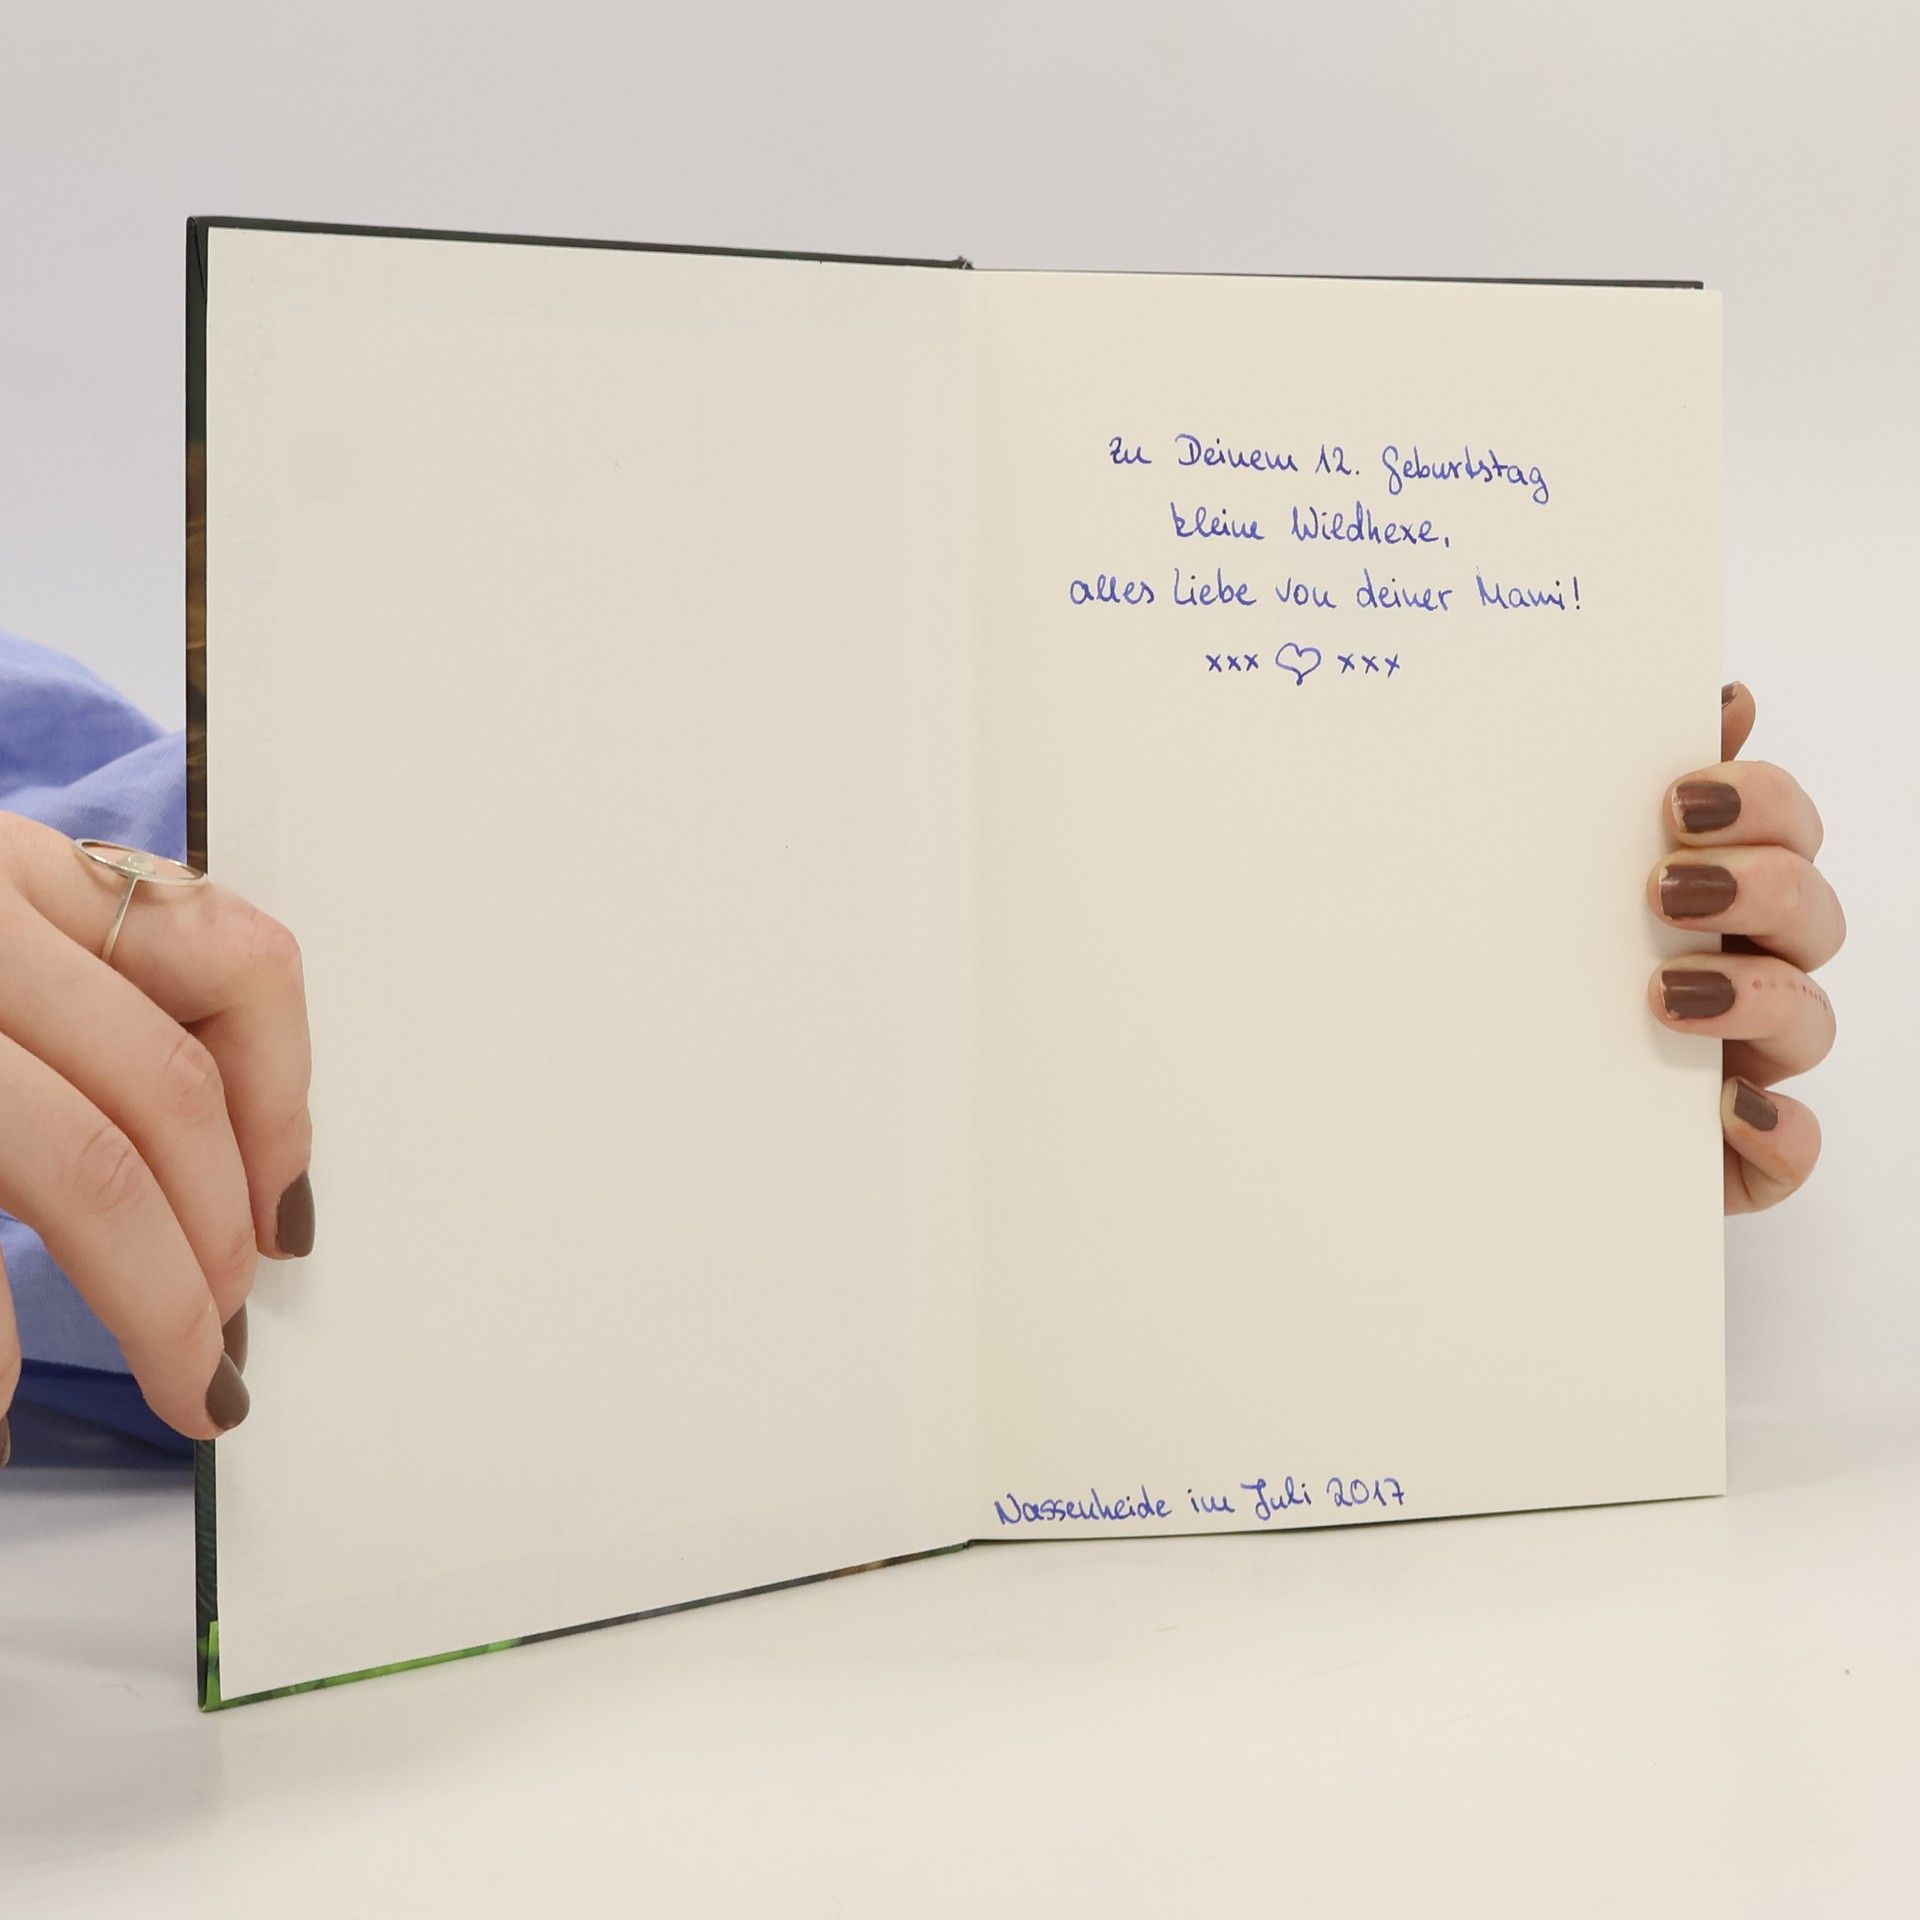 Zu Deinem 12. Geburtstag
kleine Wildhexe,
alles Liebe von deiner Mami!
xxx ♡ xxx
Nassenheide im Juli 2017